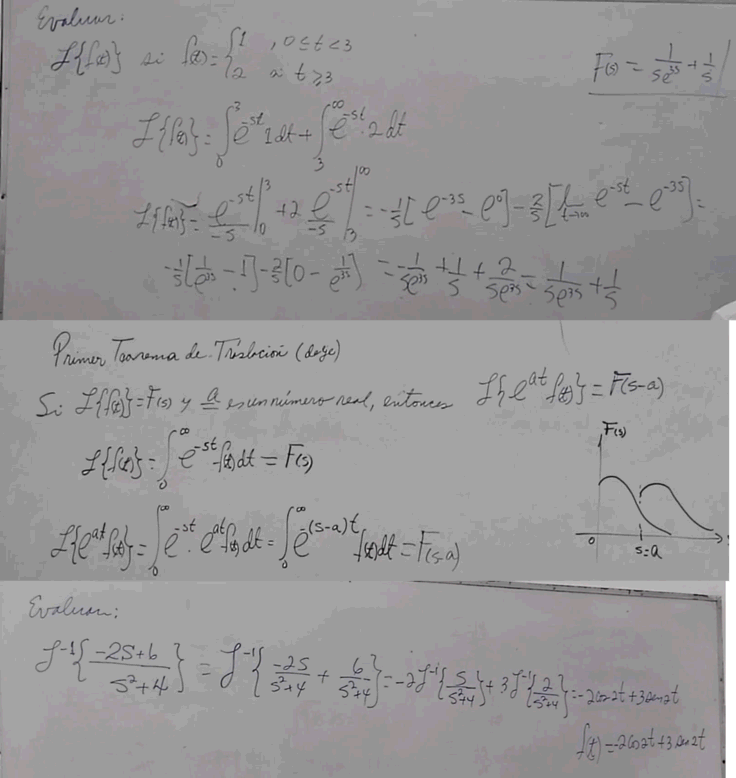 Evaluar:
ℒ{f(t)} si f(t) = { 1 , 0 ≤ t < 3
2 , t ≥ 3
F(s) = 1/(se^{3s}) + 1/s
ℒ{f(t)} = ∫_0^3 e^{-st} 1 dt + ∫_3^∞ e^{-st} · 2 dt
ℒ{f(t)} = e^{-st}/-s |_0^3 + 2 e^{-st}/-s |_3^∞ = -1/s [e^{-3s} - e^0] - 2/s [lim_{t→∞} e^{-st} - e^{-3s}] =
-1/s [1/e^{3s} - 1] - 2/s [0 - 1/e^{3s}] = -1/(se^{3s}) + 1/s + 2/(se^{3s}) = 1/(se^{3s}) + 1/s
Primer Teorema de Traslación
Si ℒ{f(t)} = F(s) y a es un número real, entonces ℒ{e^{at} f(t)} = F(s-a)
ℒ{f(t)} = ∫_0^∞ e^{-st} f(t) dt = F(s)
ℒ{e^{at} f(t)} = ∫_0^∞ e^{-st} · e^{at} f(t) dt = ∫_0^∞ e^{-(s-a)t} f(t) dt = F(s-a)
F(s)
0
s=a
Evaluar:
ℒ^{-1}{(-2s+6)/(s²+4)} = ℒ^{-1}{-2s/(s²+4) + 6/(s²+4)} = -2ℒ^{-1}{s/(s²+4)} + 3ℒ^{-1}{2/(s²+4)} = -2cos2t + 3sen2t
f(t) = -2cos2t + 3sen2t